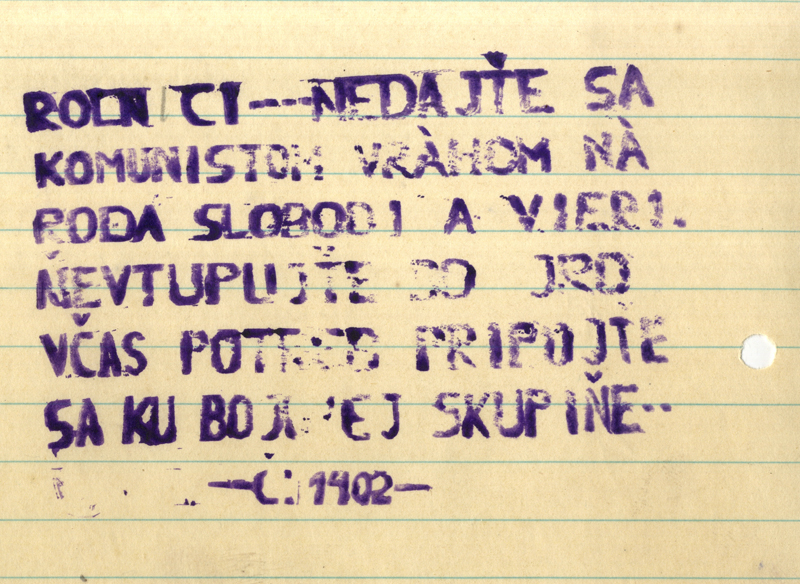 ROLNÍCI---NEDAJŤE SA
KOMUNISTOM VRÀHOM NÀ
RODA SLOBODI A VIERI.
NEVTUPUJŤE DO JRD
VČAS POTREB PRIPOJTE
SA KU BOJOVEJ SKUPIŇE--
—Č: 1402—